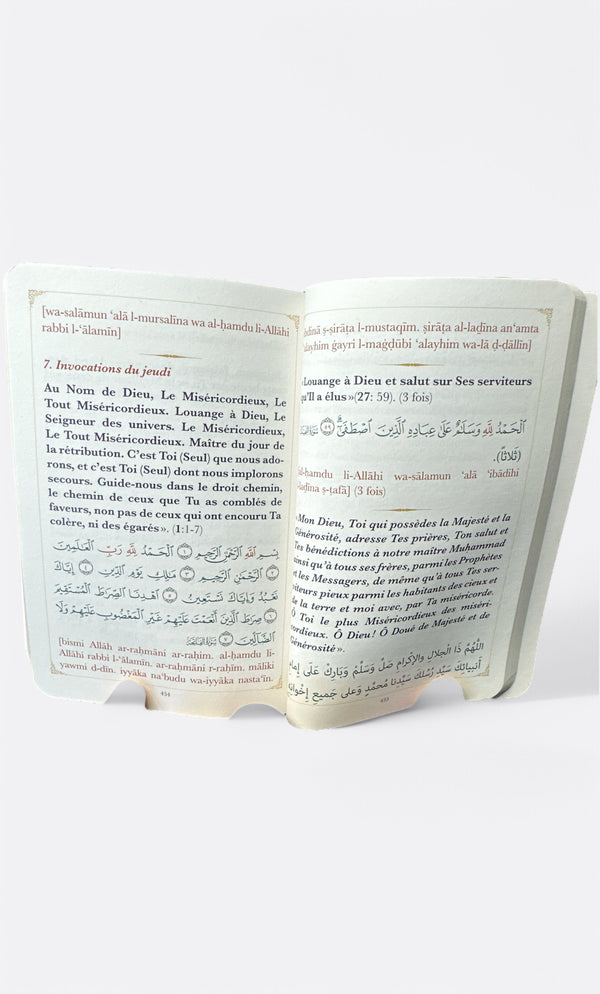 [wa-salāmun ‘alā l-mursalīna wa al-ḥamdu li-Allāhi
rabbi l-‘ālamīn]
7. Invocations du jeudi
Au Nom de Dieu, Le Miséricordieux, Le
Tout Miséricordieux. Louange à Dieu, Le
Seigneur des univers. Le Miséricordieux,
Le Tout Miséricordieux. Maître du jour de
la rétribution. C’est Toi (Seul) que nous ado-
rons, et c’est Toi (Seul) dont nous implorons
secours. Guide-nous dans le droit chemin,
le chemin de ceux que Tu as comblés de
faveurs, non pas de ceux qui ont encouru Ta
colère, ni des égarés ». (1:1-7)
بِسْمِ ٱللَّهِ ٱلرَّحْمَٰنِ ٱلرَّحِيمِ ١ ٱلْحَمْدُ لِلَّهِ رَبِّ ٱلْعَٰلَمِينَ
٢ ٱلرَّحْمَٰنِ ٱلرَّحِيمِ ٣ مَٰلِكِ يَوْمِ ٱلدِّينِ ٤ إِيَّاكَ
نَعْبُدُ وَإِيَّاكَ نَسْتَعِينُ ٥ ٱهْدِنَا ٱلصِّرَٰطَ ٱلْمُسْتَقِيمَ
٦ صِرَٰطَ ٱلَّذِينَ أَنْعَمْتَ عَلَيْهِمْ غَيْرِ ٱلْمَغْضُوبِ عَلَيْهِمْ وَلَا
ٱلضَّآلِّينَ ٧
[bismi Allāh ar-raḥmāni ar-raḥim. al-ḥamdu li-
Allāhi rabbi l-‘ālamīn. ar-raḥmāni r-raḥīm. māliki
yawmi d-dīn. iyyāka na‘budu wa-iyyāka nasta‘īn.
454
ṣirāṭa l-mustaqīm. ṣirāṭa al-laḏīna an‘amta
‘alayhim ġayri l-maġḍūbi ‘alayhim wa-lā ḍ-ḍāllīn]
«Louange à Dieu et salut sur Ses serviteurs
qu’Il a élus »(27: 59). (3 fois)
ٱلْحَمْدُ لِلَّهِ وَسَلَٰمٌ عَلَىٰ عِبَادِهِ ٱلَّذِينَ ٱصْطَفَىٰٓ ٥٩
(ثَلَاثًا).
al-ḥamdu li-Allāhi wa-sālamun ‘alā ‘ibādihi
ṣ-ṭafā] (3 fois)
«Mon Dieu, Toi qui possèdes la Majesté et la
Générosité, adresse Tes prières, Ton salut et
Tes bénédictions à notre maître Muḥammad
ainsi qu’à tous ses frères, parmi les Prophètes
et les Messagers, de même qu’à tous Tes ser-
viteurs pieux parmi les habitants des cieux et
de la terre et moi avec, par Ta miséricorde.
Ô Toi le plus Miséricordieux des miséri-
cordieux. Ô Dieu! Ô Doué de Majesté et de
Générosité».
اللَّهُمَّ ذَا الْجَلالِ وَالإِكرامِ صَلِّ وَسَلِّمْ وَبَارِكْ عَلَى إِمامِ
أَنبِيائِكَ سَيِّدِ رُسُلِكَ سَيِّدِنا مُحَمَّدٍ وَعَلى جَمِيعِ إِخْوانِهِ
455